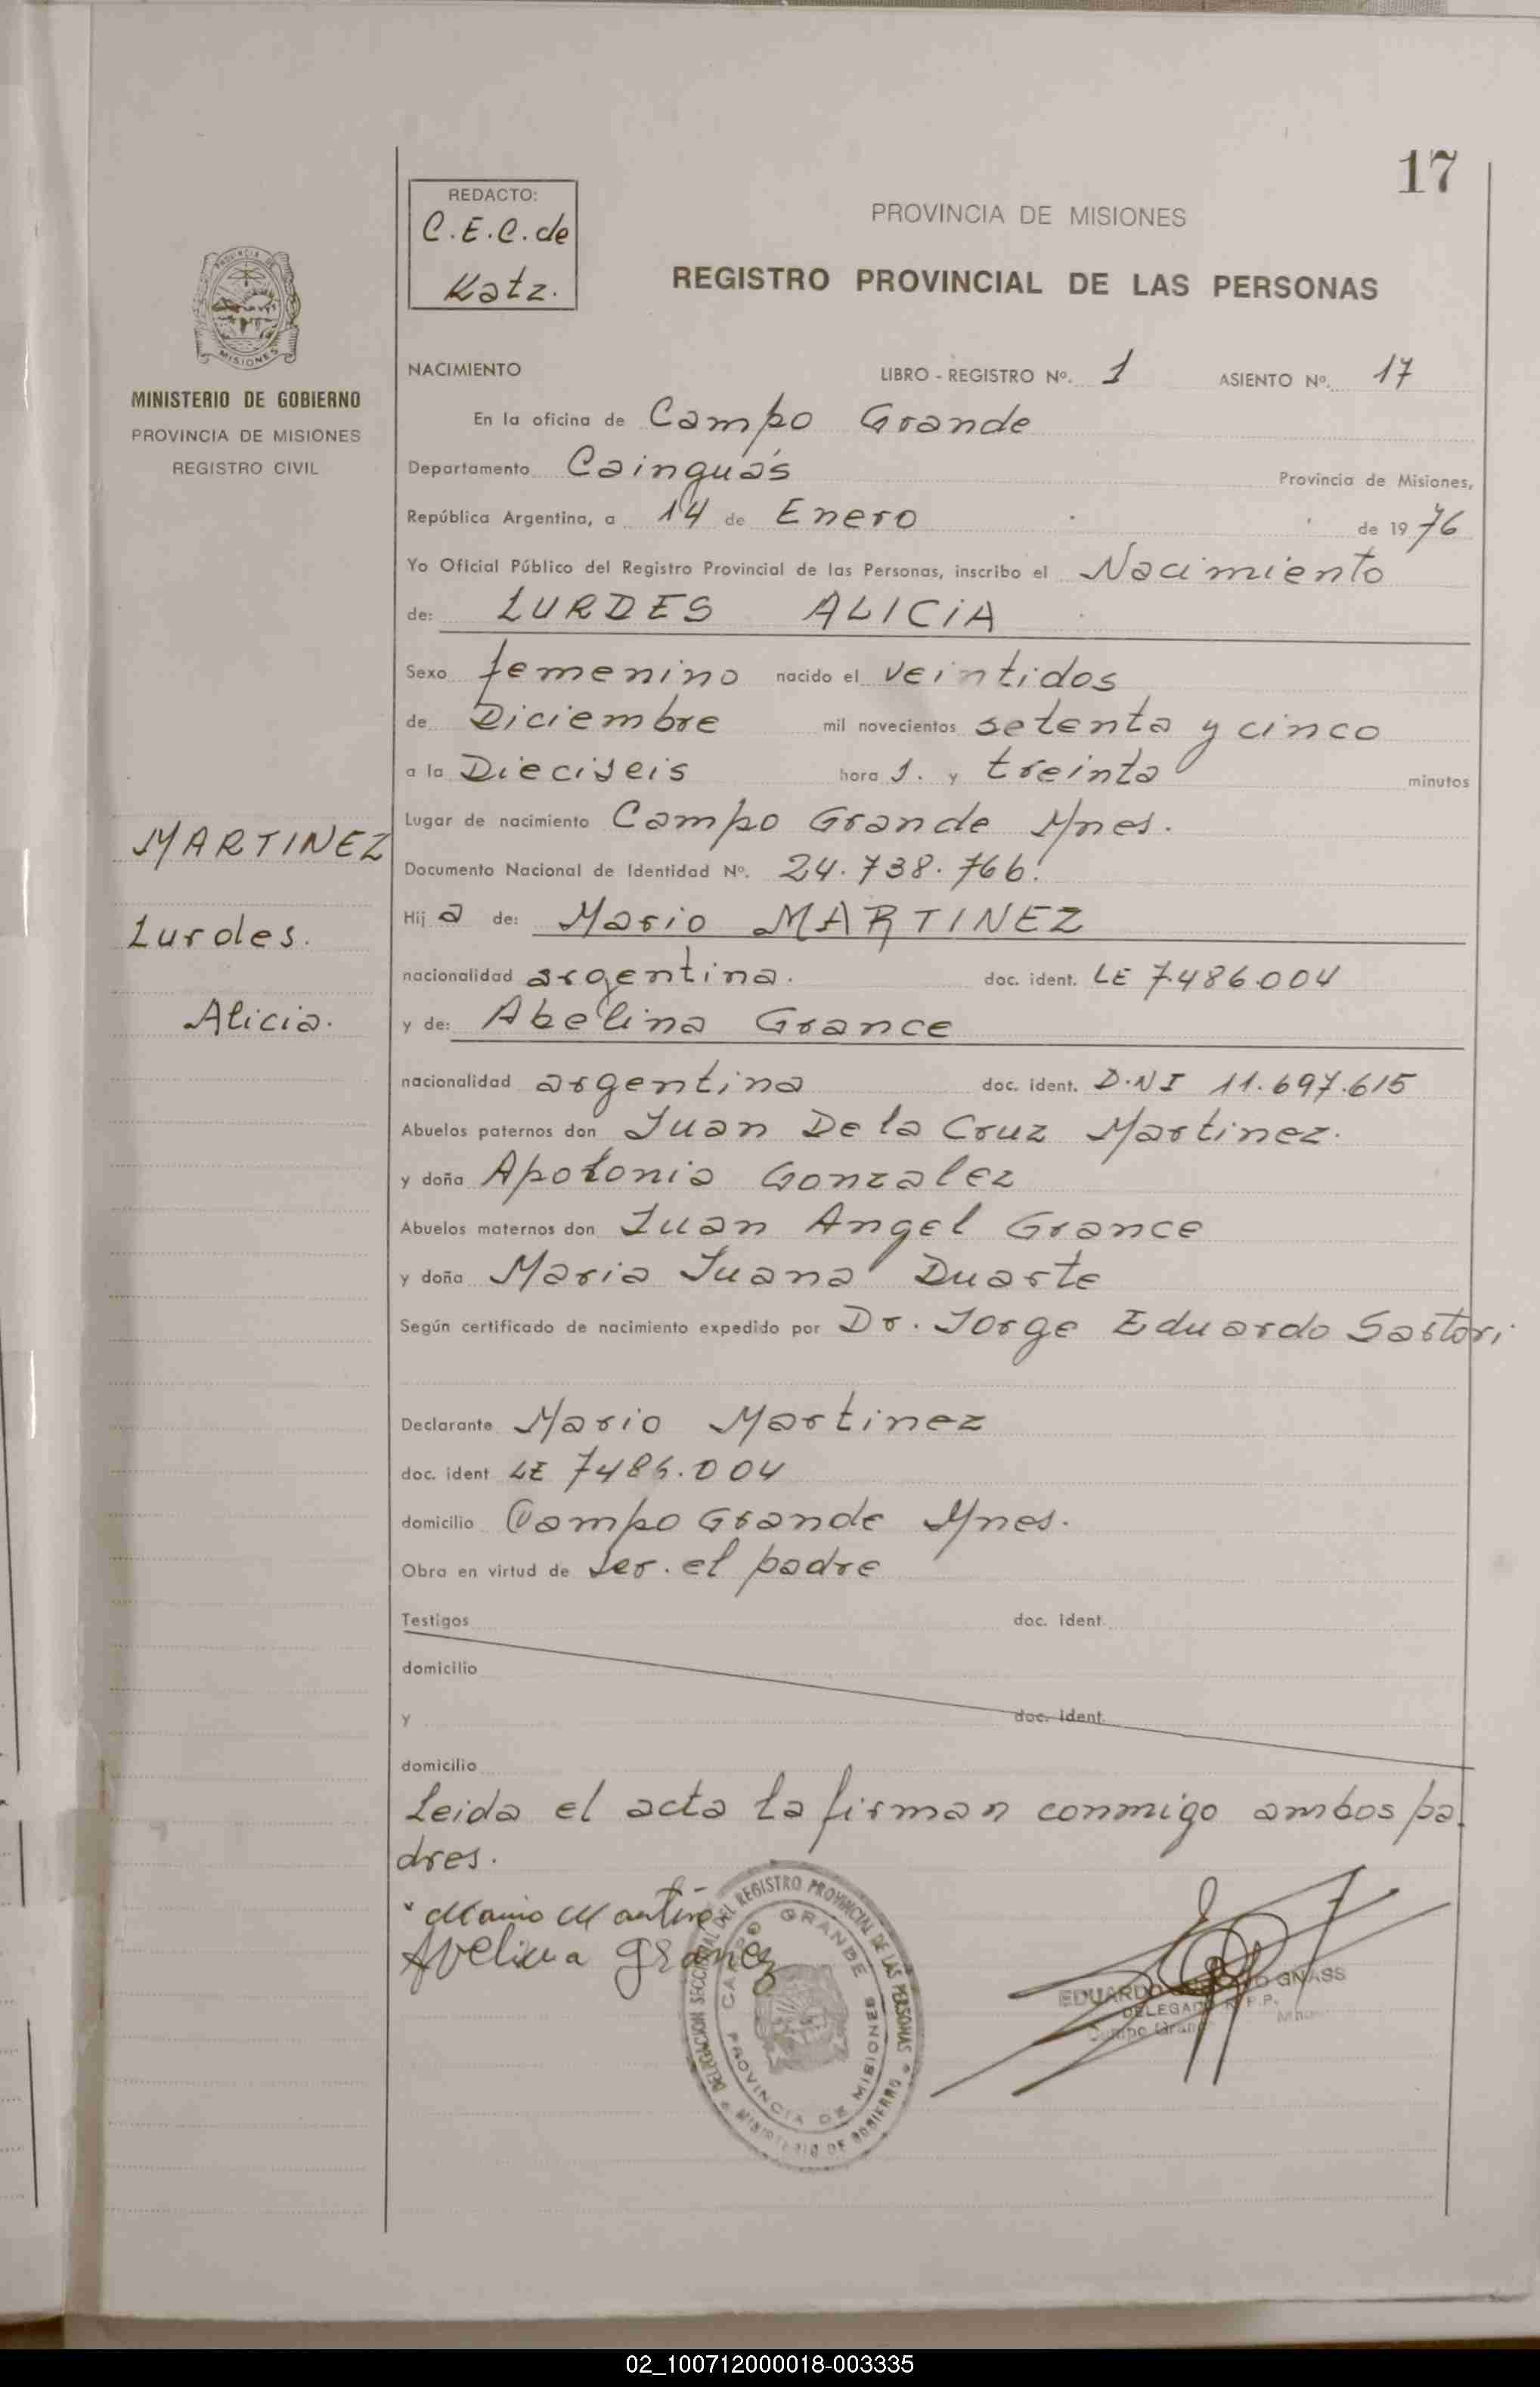 17
REDACTO:
C.E.C. de
Katz.
PROVINCIA DE MISIONES
REGISTRO PROVINCIAL DE LAS PERSONAS
PROVINCIA DE
MISIONES
MINISTERIO DE GOBIERNO
PROVINCIA DE MISIONES
REGISTRO CIVIL
MARTINEZ
Lurdes.
Alicia.
NACIMIENTO LIBRO - REGISTRO Nº. 1 ASIENTO Nº. 17
En la oficina de Campo Grande
Departamento Cainguás Provincia de Misiones,
República Argentina, a 14 de Enero de 19 76
Yo Oficial Público del Registro Provincial de las Personas, inscribo el Nacimiento
de: LURDES ALICIA
Sexo femenino nacido el veintidos
de Diciembre mil novecientos setenta y cinco
a la Dieciseis hora s. y treinta minutos
Lugar de nacimiento Campo Grande Mnes.
Documento Nacional de Identidad Nº. 24.738.766.
Hij a de: Mario MARTINEZ
nacionalidad argentina. doc. ident. LE 7.486.004
y de: Abelina Grance
nacionalidad argentina doc. ident. D.NI 11.697.615
Abuelos paternos don Juan De la Cruz Martinez.
y doña Apolonia Gonzalez
Abuelos maternos don Juan Angel Grance
y doña Maria Juana Duarte
Según certificado de nacimiento expedido por Dr. Jorge Eduardo Sartori
Declarante Mario Martinez
doc. ident LE 7486.004
domicilio Campo Grande Mnes.
Obra en virtud de ser. el padre
Testigos doc. ident.
domicilio
y doc. ident.
domicilio
Leida el acta la firman conmigo ambos pa
dres.
Mario Martine
Avelina Grance
DELEGACION SECCIONAL DEL REGISTRO PROVINCIAL DE LAS PERSONAS
MINISTERIO DE GOBIERNO
CAMPO GRANDE
PROVINCIA DE MISIONES
EDUARDO GNASS
DELEGADO R.P.P.
Campo Grande
02_100712000018-003335